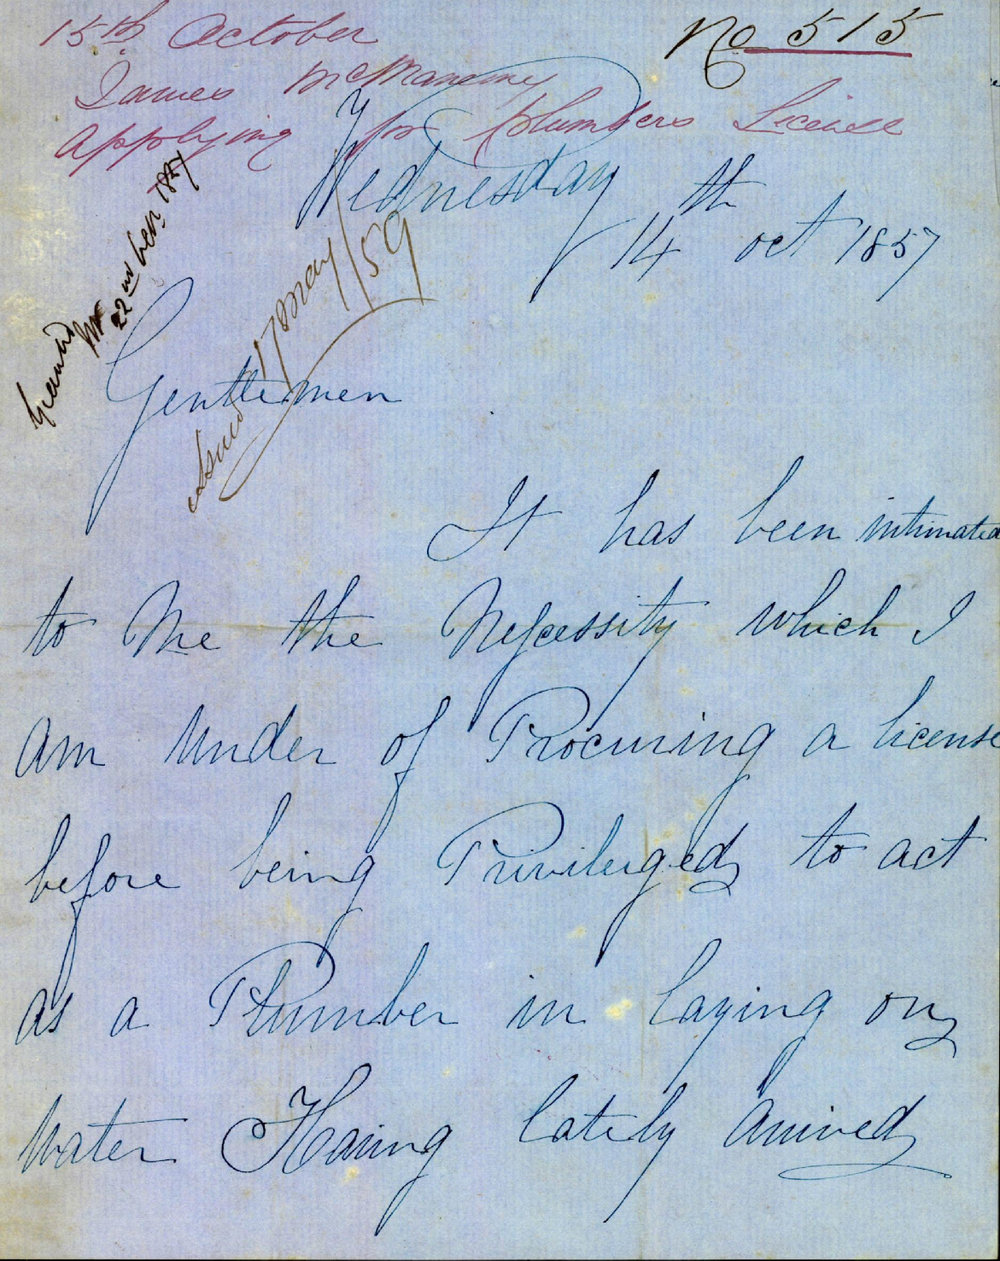 15th October
No 515
James McManemy
Applying for Plumbers License
Wednesday
14th oct 1857
22nd 1857
17 May /59
Gentlemen
It has been intimated
to Me the Nessessity which I
am Under of Procuring a license
before being Priviledged to act
as a Plumber in laying on
Water Having lately Arrived